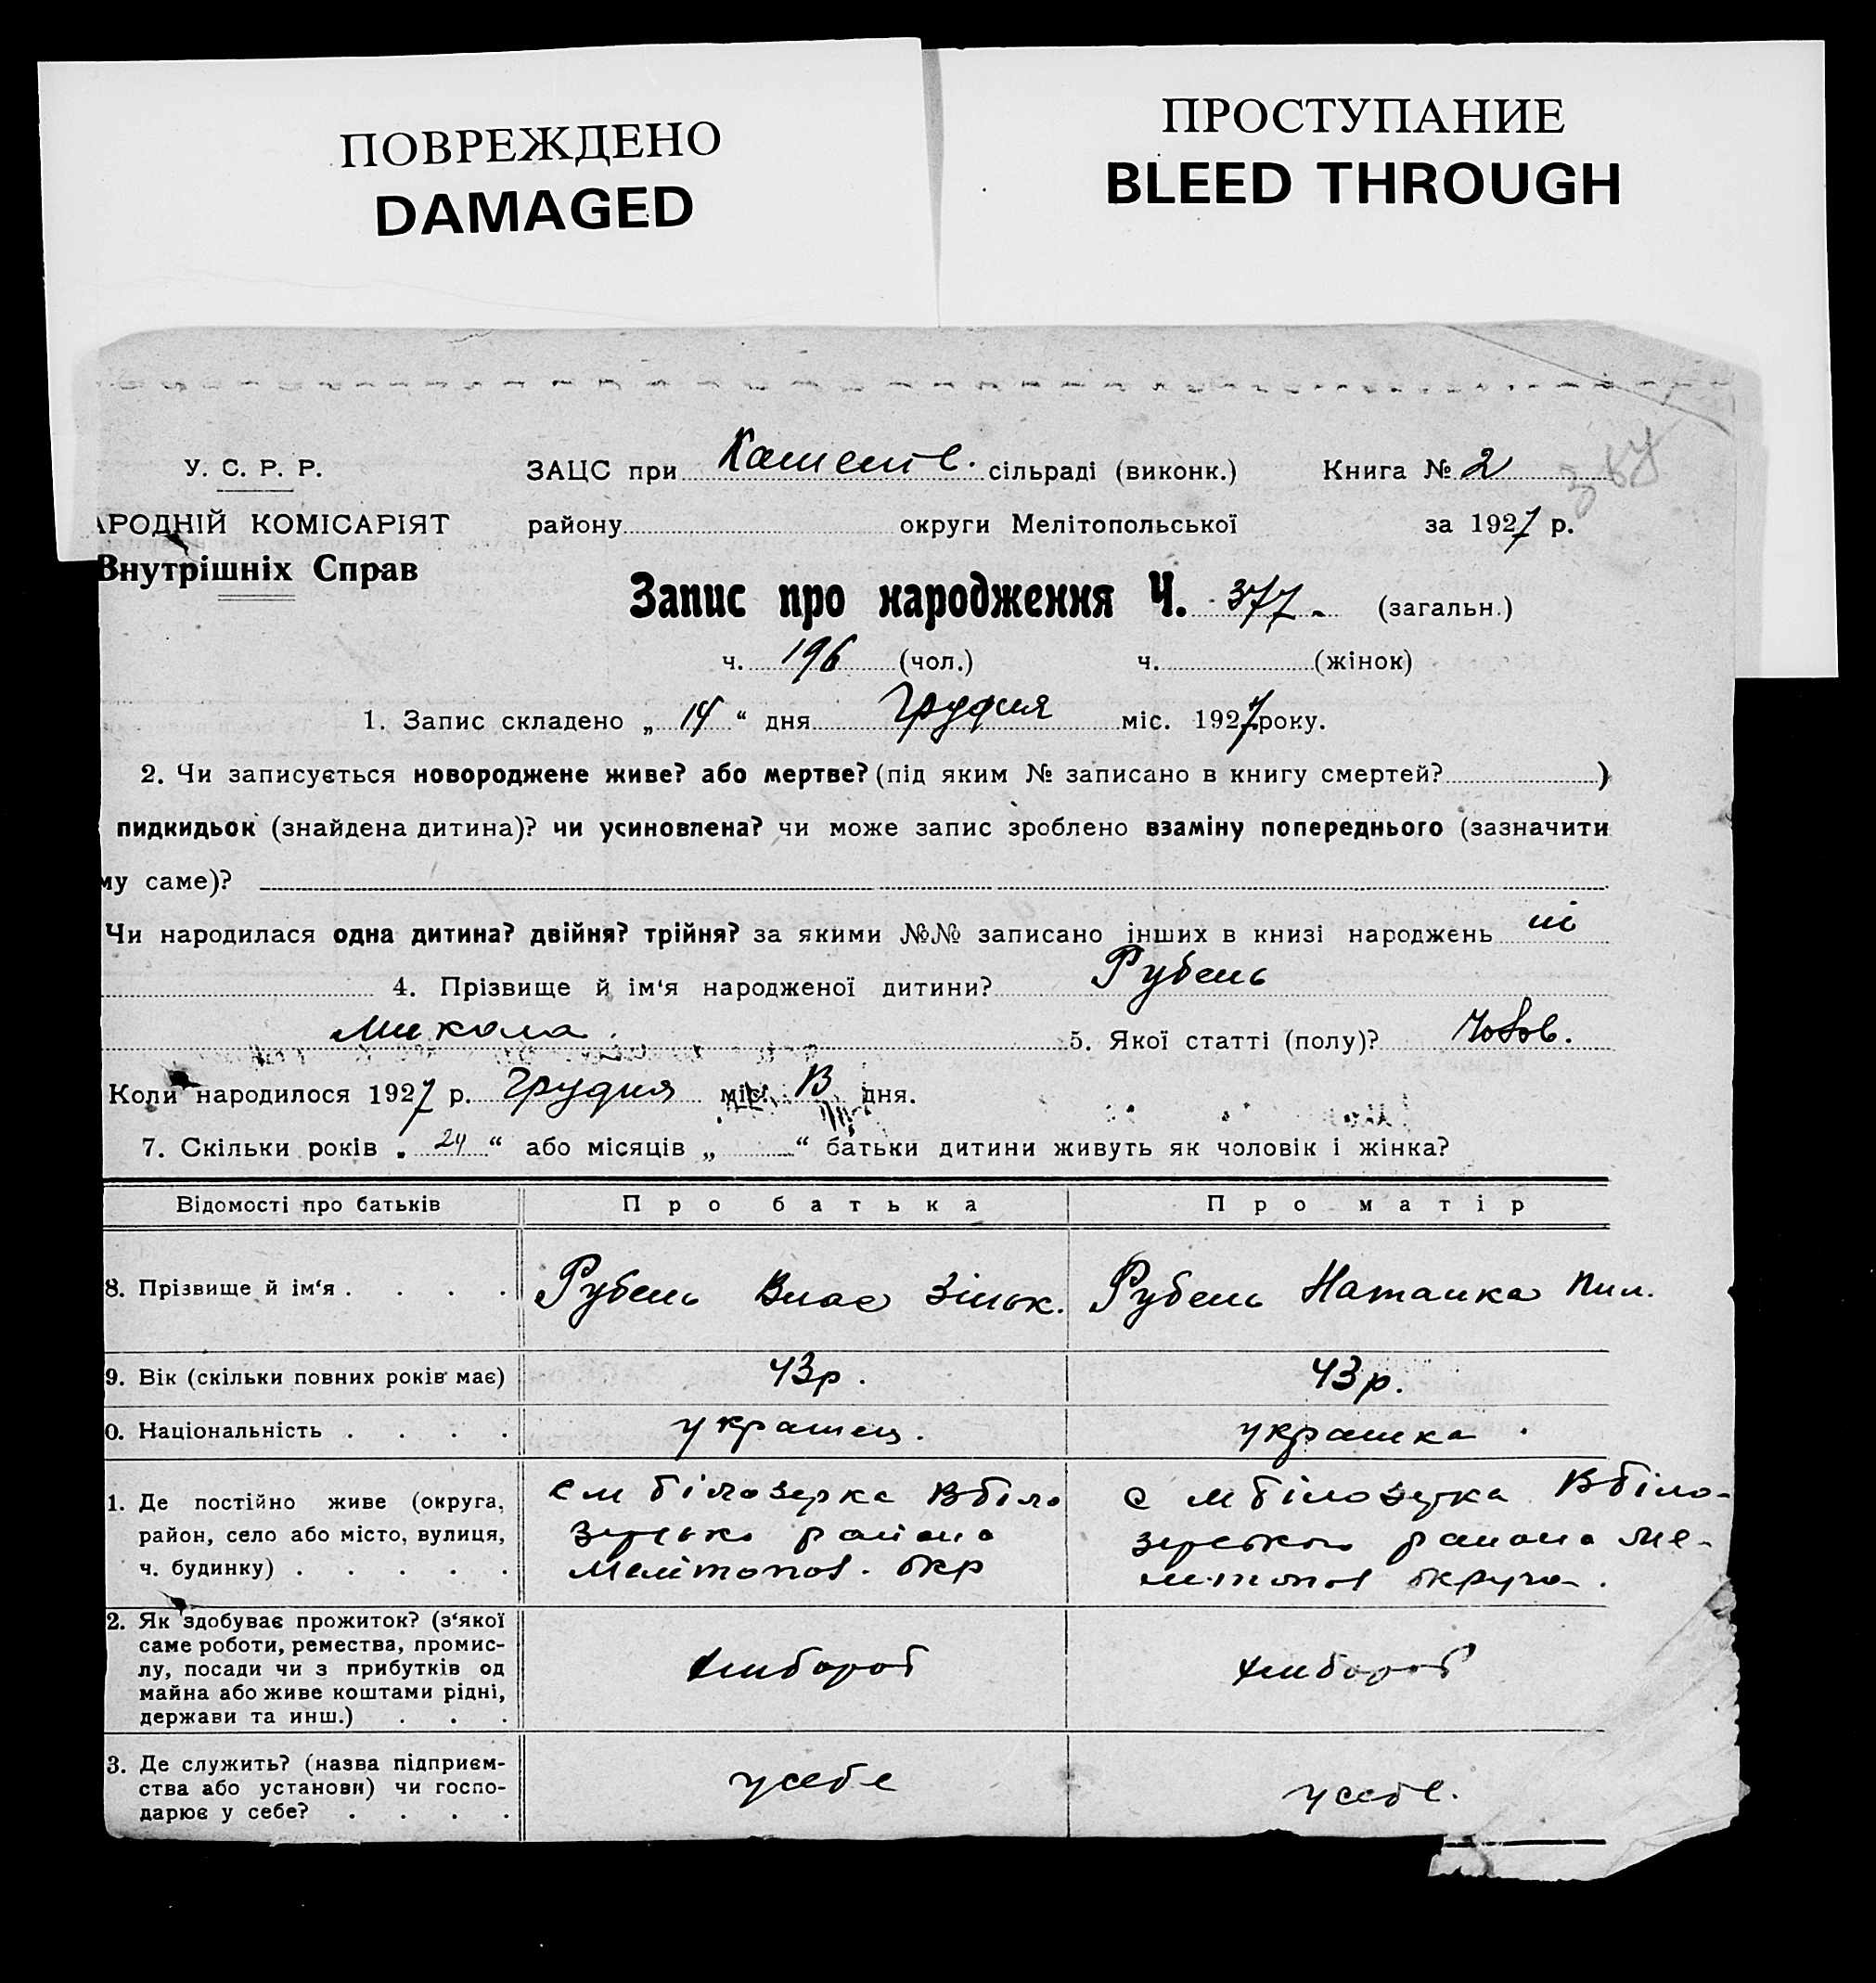 ПОВРЕЖДЕНО
DAMAGED
ПРОСТУПАНИЕ
BLEED THROUGH
У. С. Р. Р.
ЗАЦС при сільраді (виконк.) Книга № 2
АРОДНІЙ КОМІСАРІЯТ
району округи Мелітопольської за 1927 р.
Внутрішніх Справ
Запис про народження Ч. 377. (загальн.)
ч. 196 (чол.) ч. (жінок)
1. Запис складено „ 14 “ дня грудня міс. 1927 року.
2. Чи записується новороджене живе? або мертве? (під яким № записано в книгу смертей? )
пидкидьок (знайдена дитина)? чи усиновлена? чи може запис зроблено взаміну попереднього (зазначити
му саме)?
Чи народилася одна дитина? двійня? трійня? за якими №№ записано інших в книзі народжень ні
4. Прізвище й ім‘я народженої дитини? Рубель
Микола. 5. Якої статті (полу)? Чолов.
Коли народилося 1927 р. грудня міс. дня.
7. Скільки років „ 24 “ або місяців „ “ батьки дитини живуть як чоловік і жінка?
Відомості про батьків Про батька Про матір
8. Прізвище й ім‘я . . . . Рубель Влас Зіньк. Рубель Наталка Пил.
9. Вік (скільки повних років має) 43р. 43р.
0. Національність . . . . украинец. украинка.
1. Де постійно живе (округа,
район, село або місто, вулиця,
ч. будинку) . . . . .
с м білозерка Вбіло
зерсько района
Мелітопол. окр
с м білозерка Вбіло-
зерського района Ме-
літопол округа.
2. Як здобуває прожиток? (з‘якої
саме роботи, ремества, промис-
лу, посади чи з прибутків од
майна або живе коштами рідні,
держави та инш.) . . .
хлибороб
хлибороб
3. Де служить? (назва підприєм-
ства або установи) чи госпо-
дарює у себе? . . . .
у себе
у себе.